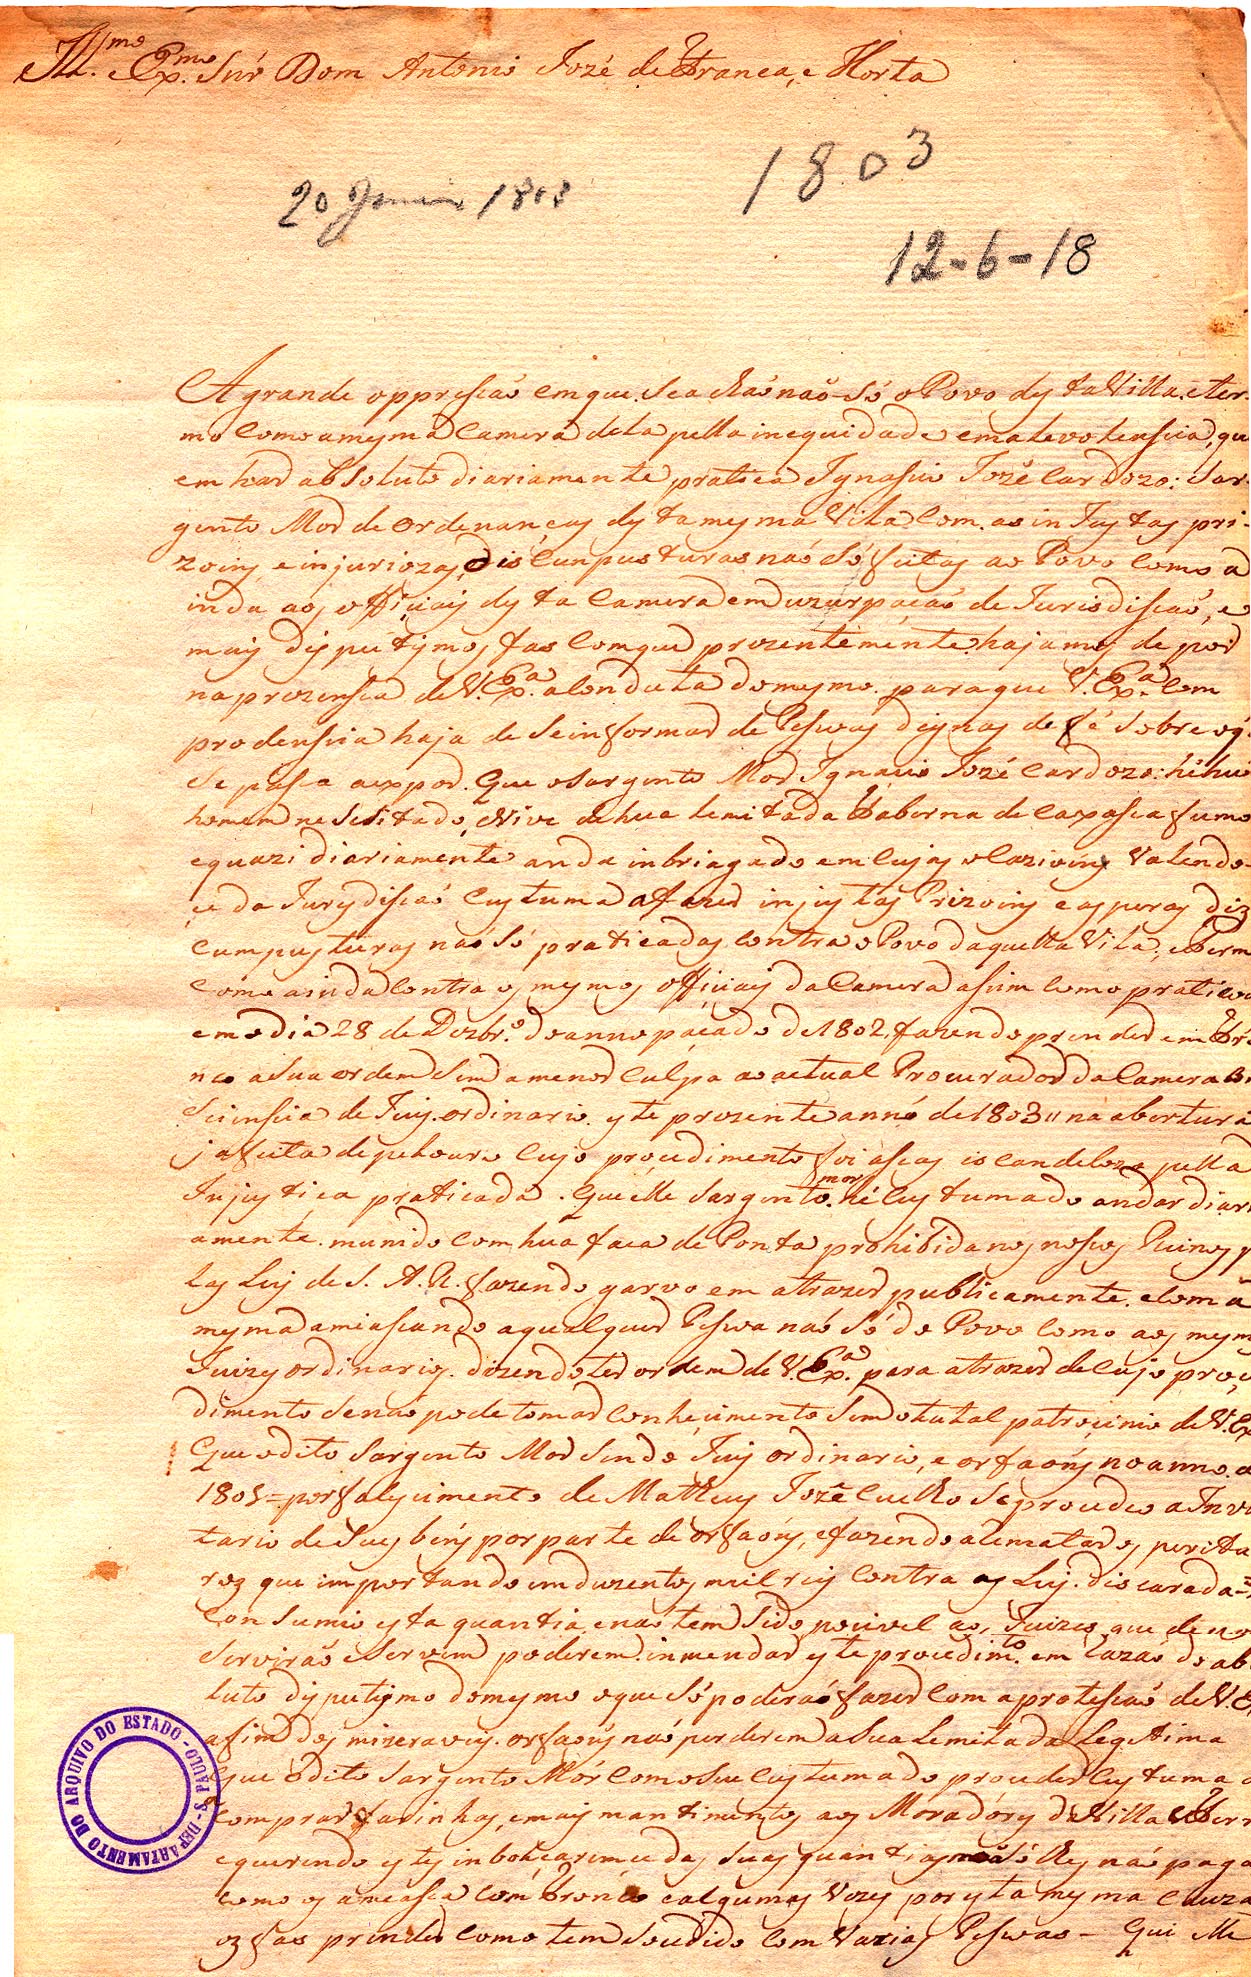 Ill.mo e Ex.mo Snr Dom Antonio Jozé de Franca, e Horta
1803
20 Janeiro 1803
12-6-18
A grande oppressaó em que se achaó naó só o Povo desta Villa e ter-
mo como a mesma Camera dela pella inequidade e malevolensia, que
em hear absoluto diariamente pratica Ignasio Jozé Cardozo: Sar-
gento Mor de ordenancas desta mesma Vila com as injustas pri-
zoins e injuriozas discunpusturas naó só feitas ao Povo como a
inda aos officiais desta Camera em uzurpacaó de Jurisdiscaó, e
mais disputismos fas com que prezentemente hajamos de por
na prezensia de V. Ex.a a conduta do mesmo para que V. Ex.a com
prodensia haja de se informar de Pesoas dignas de fé sobre oq
se pasca a expor. Que o Sargento Mor Ignacio Jozé Cardozo: hé hu
homem nesesitado, e Vive de hua lemitada Taberna de caxasca fumo
e quazi diariamente anda inbriagado em cujas ocazioins Valendo-
ce da Jurysdiscaó custuma a fazer injustas Prizoins e asperas dis
cumpusturas naó só praticadas contra o Povo daquella Vila; e Term
como ainda contra os mesmos officiais da Camera asim como praticou
em o dia 28 de Dezbr.o do anno paçado de 1802 fazendo prender em Tro
nco a sua ordem sem a menor culpa ao actual Procurador da Camera con
Sciensia de Juis ordinario este prezente anno de 1803 na abertura
ja feita de pelouro cujo procedimento foi ascas iscandelozo pella
Injustica praticada. Que elle Sargento mor hé custumado andar diari
amente munido com húa faca de Ponta prohibida nos nosos Reinos p
las Leis de S. A. R. fazendo garvo em a trazer publicamente e com a
mesma ameascando a qualquer Pesoa naó só do Povo como aos mesm
Juizes ordinarios dizendo ter ordem de V. Ex.a para a trazer de cujo proce
dimento se nao pode tomar conhecimento sem o total patrocinio de V. Ex
Que o dito Sargento Mor sendo Juis ordinario, e orfaóns no anno d
180 = por falescimento de Matheus Jozé Coelho se procedeo a Inven
tario de seus béns por parte de orfaóns, e fazendo alematar os
 que importando em duzentos mil reis contra as Leis
Consumio esta quantia, e naó tem sido pocivel aos Juizes que de no
Serviraó e Servem poderem inmendar este procedim.to em razaó do abso
luto disputismo do mesmo o que só poderaó fazer com a protescaó de V. E
afim dos mizeraveis orfaóns naó perderem a sua lemitada Legitima
Que o dito Sargento Mór como seu custumado proceder custuma
comprar farinhas, e mais mantimentos aos Moradores da Villa e Term
e querendo estes inbolçaremce das suas quantias naó só lhes naó paga
como os ameasca com Tronco e algumas Vezes por esta mesma cauza
os fas prender como tem sucedido com Varias Pesoas - Que elle
DEPARTAMENTO DO ARQUIVO DO ESTADO - S. PAULO